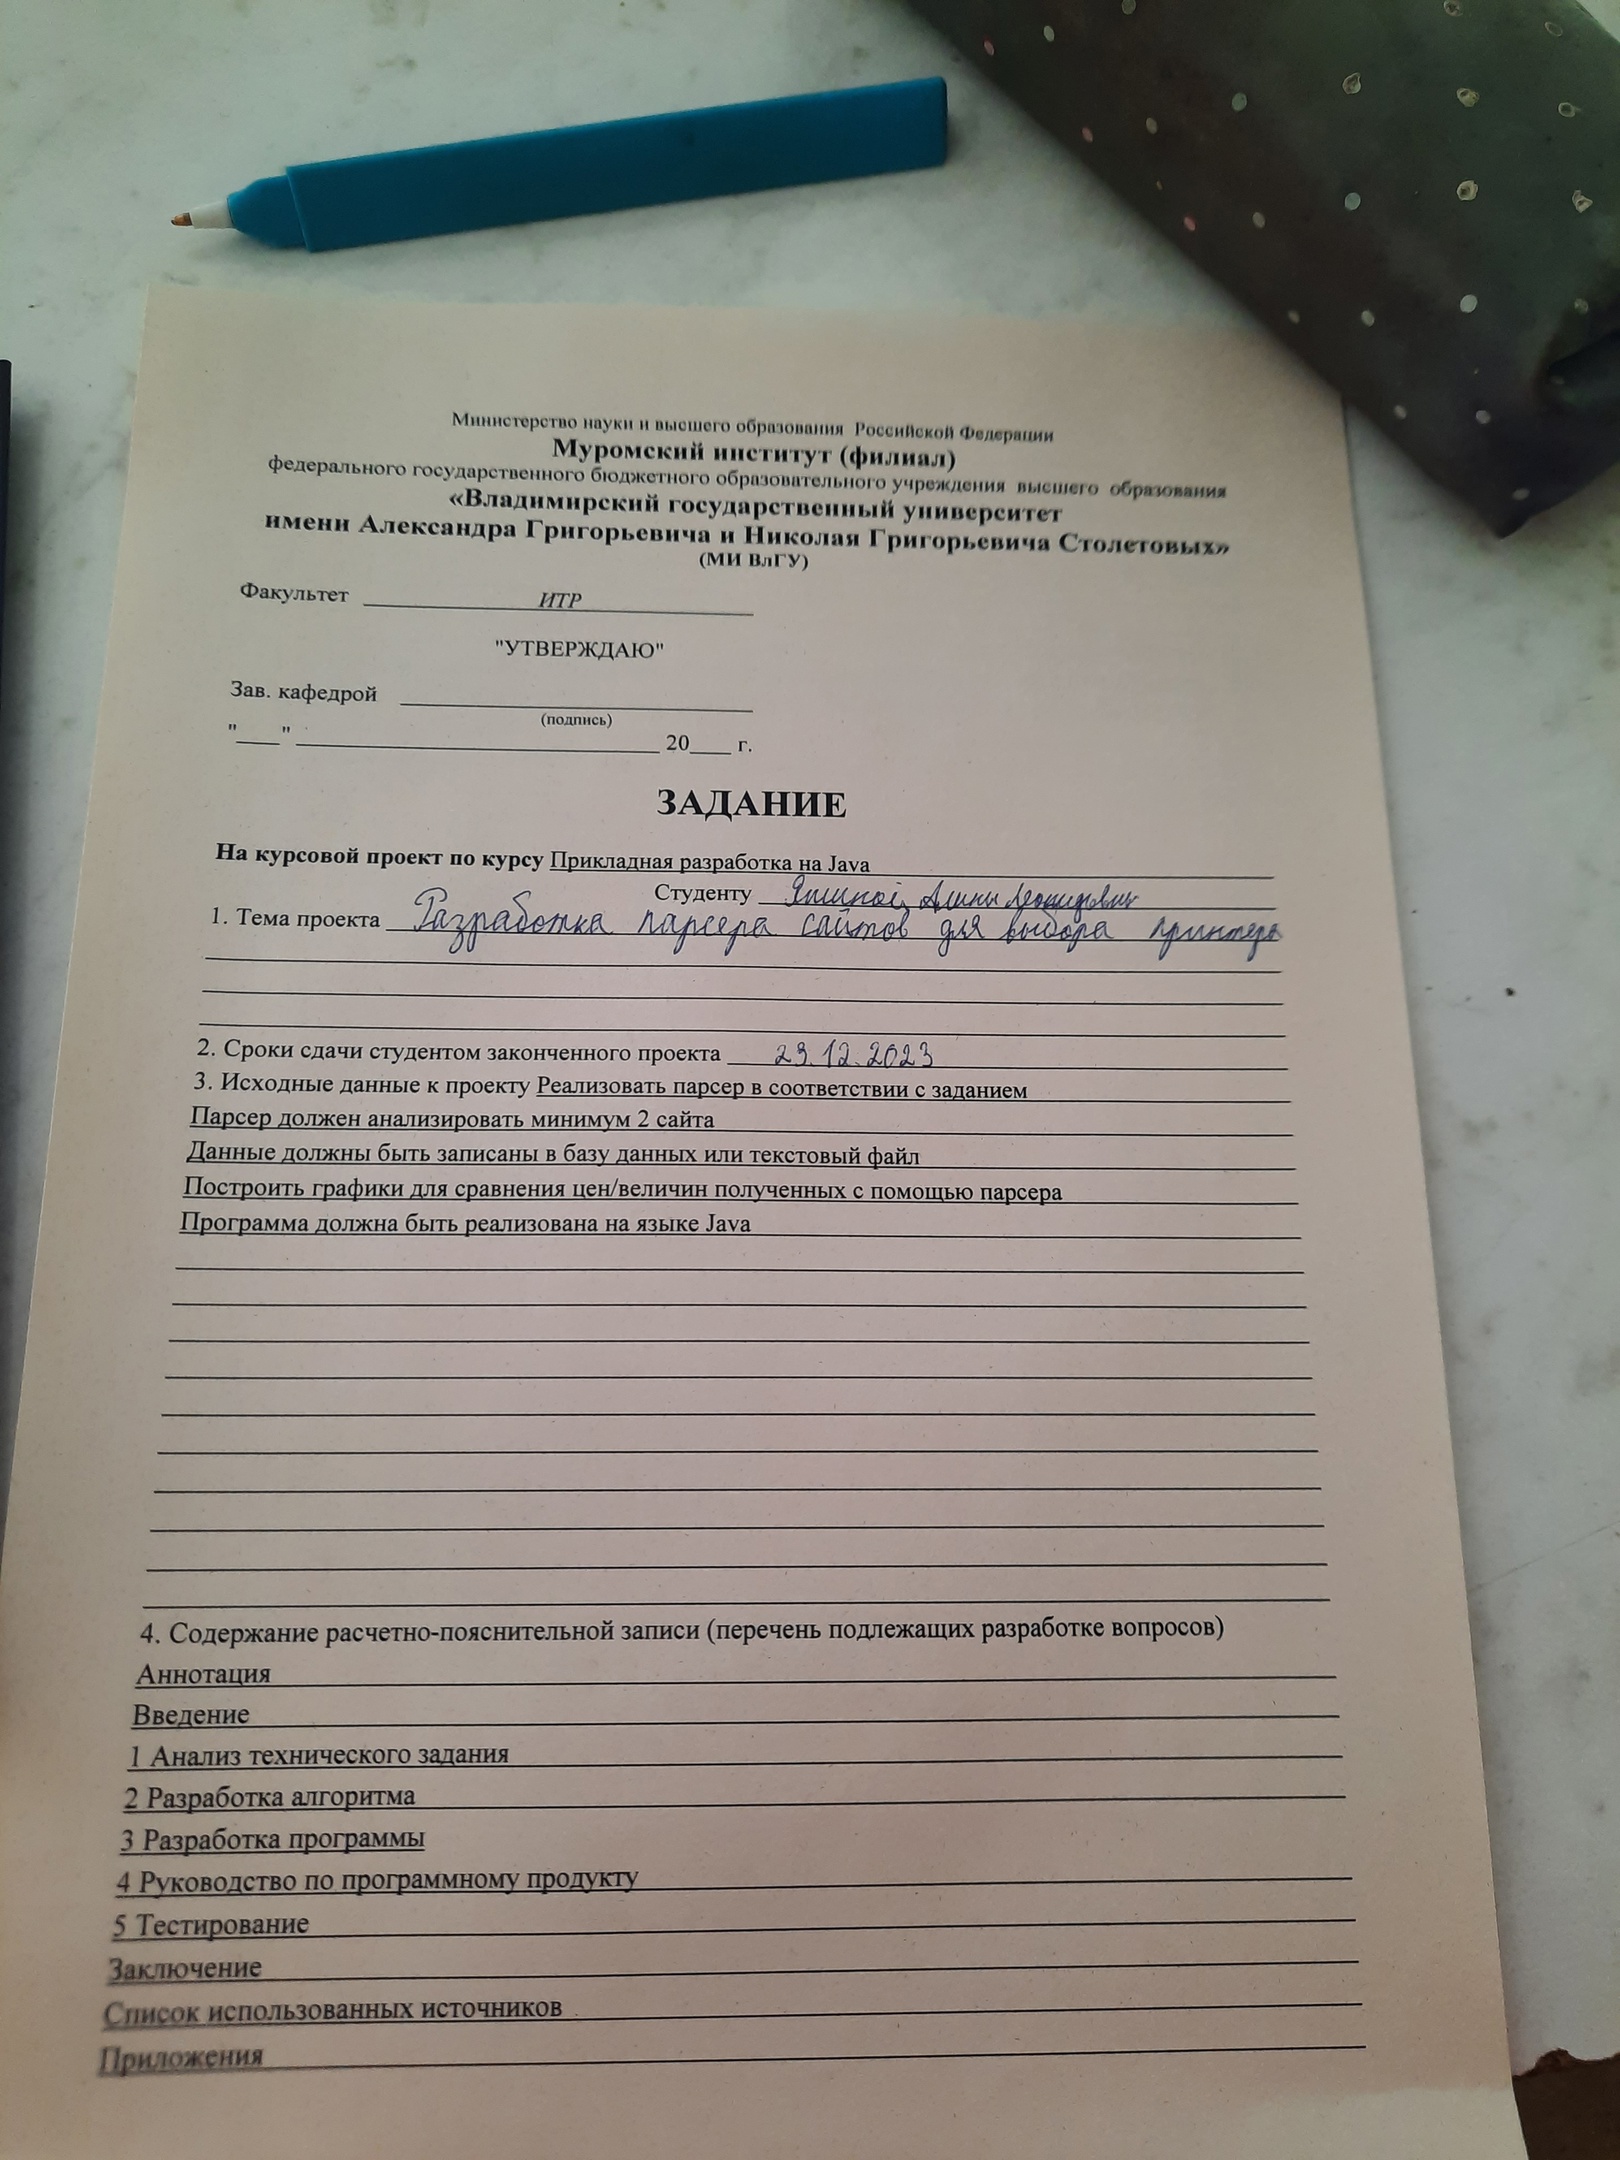 Министерство науки и высшего образования Российской Федерации
Муромский институт (филиал)
федерального государственного бюджетного образовательного учреждения высшего образования
«Владимирский государственный университет
имени Александра Григорьевича и Николая Григорьевича Столетовых»
(МИ ВлГУ)
Факультет ИТР
"УТВЕРЖДАЮ"
Зав. кафедрой
(подпись)
"___" ______ 20___ г.
ЗАДАНИЕ
На курсовой проект по курсу Прикладная разработка на Java
Студенту
1. Тема проекта Разработка парсера сайтов для выбора принтера
2. Сроки сдачи студентом законченного проекта 23.12.2023
3. Исходные данные к проекту Реализовать парсер в соответствии с заданием
Парсер должен анализировать минимум 2 сайта
Данные должны быть записаны в базу данных или текстовый файл
Построить графики для сравнения цен/величин полученных с помощью парсера
Программа должна быть реализована на языке Java
4. Содержание расчетно-пояснительной записи (перечень подлежащих разработке вопросов)
Аннотация
Введение
1 Анализ технического задания
2 Разработка алгоритма
3 Разработка программы
4 Руководство по программному продукту
5 Тестирование
Заключение
Список использованных источников
Приложения